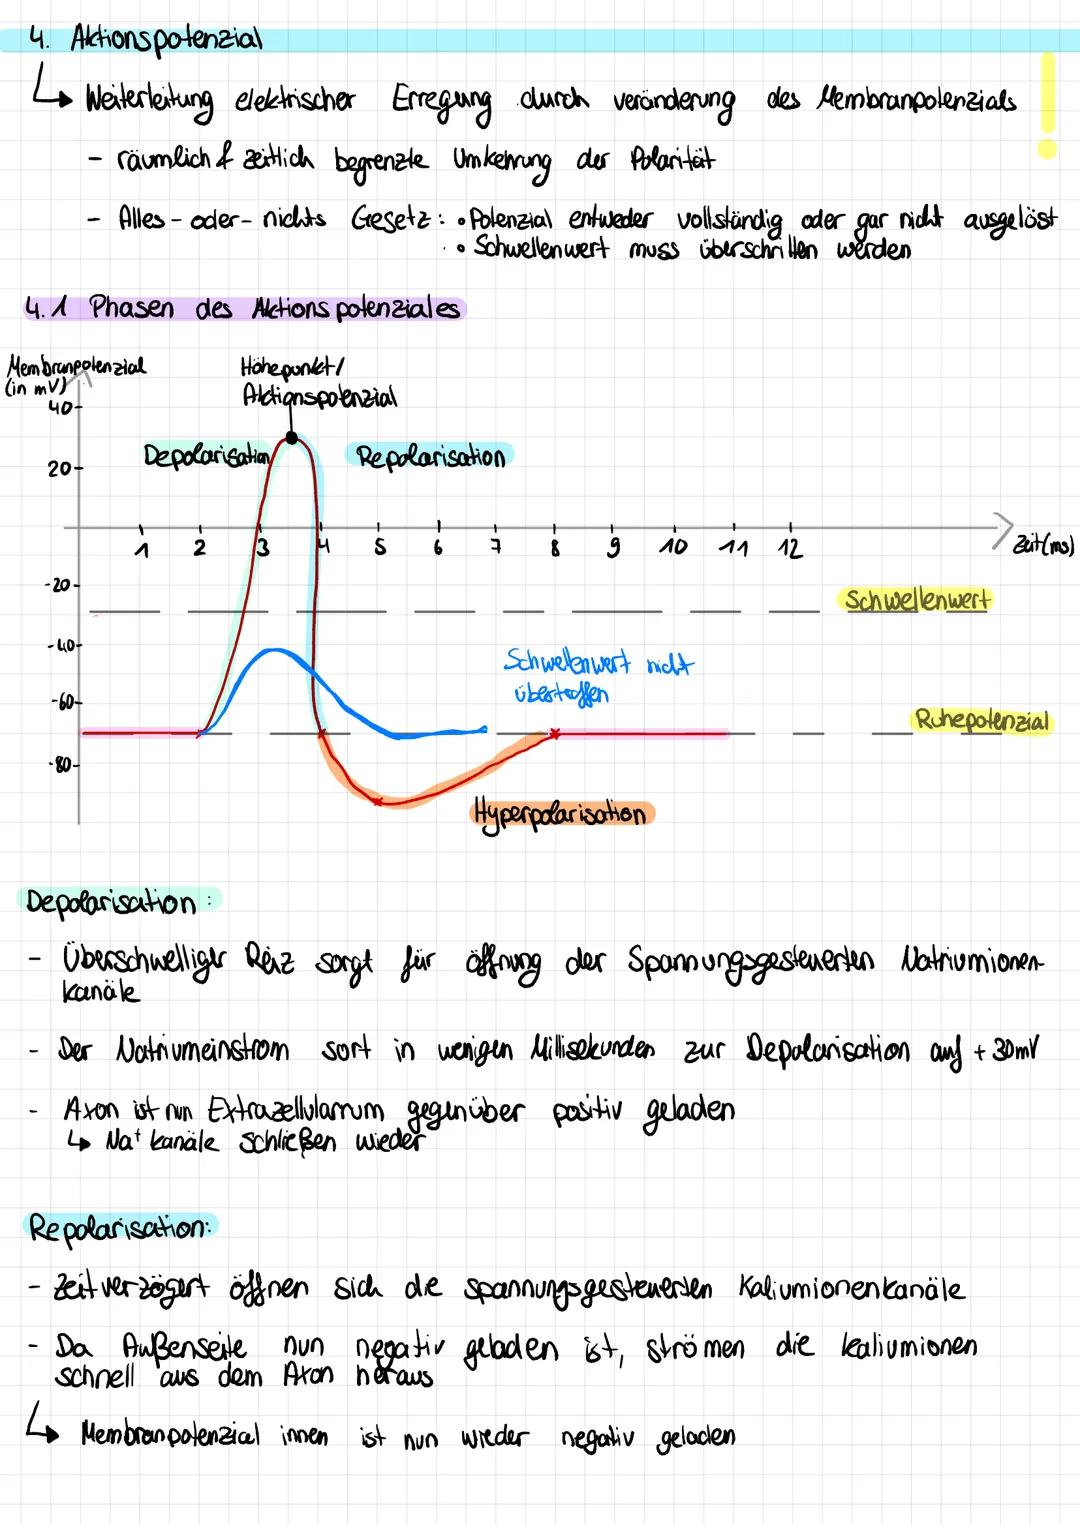 4. Aktionspotenzial
↳ Weiterleitung elektrischer Erregung durch veränderung des Membranpotenzials !
- räumlich & zeitlich begrenzte Umkehrung der Polarität
- Alles-oder-nichts Gesetz: • Potenzial entweder vollständig oder gar nicht ausgelöst
• Schwellenwert muss überschritten werden
4.1 Phasen des Aktionspotenziales
Membranpotenzial
(in mV)
Höhepunkt/
Aktionspotenzial
40
Depolarisation
Repolarisation
20
1 2 3 4 5 6 7 8 9 10 11 12
Zeit (ms)
-20
Schwellenwert
-40
Schwellenwert nicht
übertroffen
-60
Ruhepotenzial
-80
Hyperpolarisation
Depolarisation:
- Überschwelliger Reiz sorgt für öffnung der Spannungsgesteuerten Natriumionen-
kanäle
- Der Natriumeinstrom sort in wenigen Millisekunden zur Depolarisation auf +30mV
- Axon ist nun Extrazellularrum gegenüber positiv geladen
↳ Na⁺ kanäle schließen wieder
Repolarisation:
- Zeitverzögert öffnen sich die spannungsgesteuerten Kaliumionenkanäle
- Da Außenseite nun negativ geladen ist, strömen die kaliumionen
schnell aus dem Axon heraus
↳ Membranpotenzial innen ist nun wieder negativ geladen